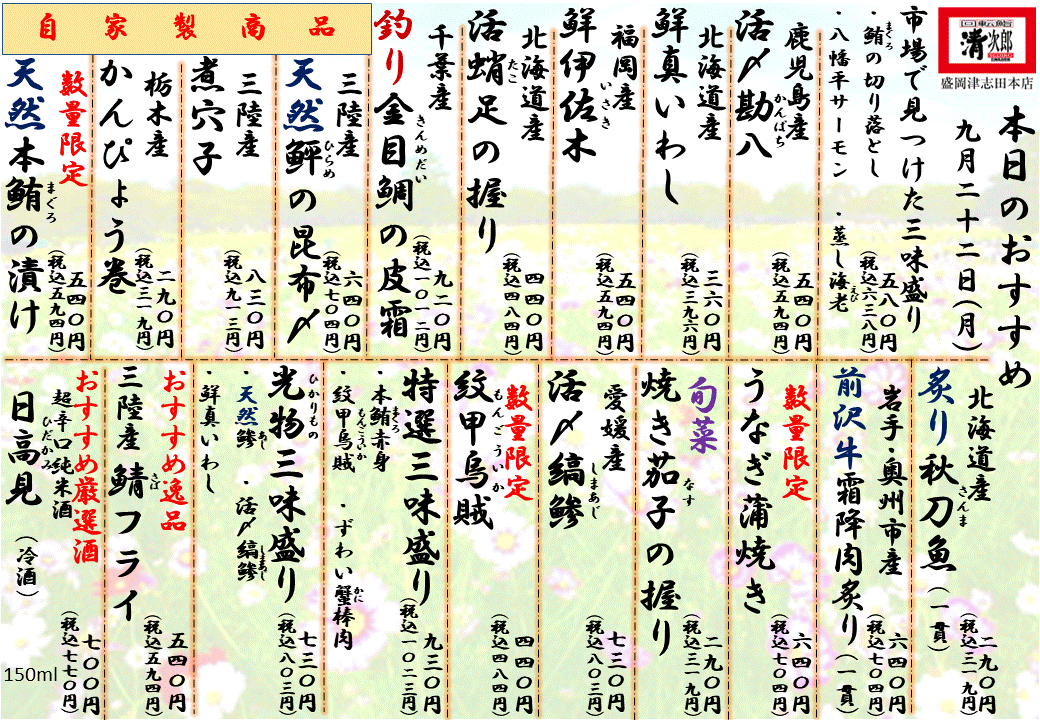 回転鮨
清次郎
盛岡津志田本店
本日のおすすめ
九月二十二日(月)
市場で見つけた三味盛り
・鮪の切り落とし
まぐろ
・八幡平サーモン ・蒸し海老
えび
五八〇円
(税込六三八円)
鹿児島産
活〆勘八
かんぱち
五四〇円
(税込五九四円)
北海道産
鮮真いわし
三六〇円
(税込三九六円)
福岡産
鮮伊佐木
いさき
五四〇円
(税込五九四円)
北海道産
活蛸足の握り
たこ
四四〇円
(税込四八四円)
千葉産
釣り金目鯛の皮霜
きんめだい
九二〇円
(税込一〇一二円)
自家製商品
三陸産
天然鮃の昆布〆
ひらめ
六四〇円
(税込七〇四円)
三陸産
煮穴子
八三〇円
(税込九一三円)
栃木産
かんぴょう巻
二九〇円
(税込三一九円)
数量限定
天然本鮪の漬け
まぐろ
五四〇円
(税込五九四円)
北海道産
炙り秋刀魚(一貫)
さんま
二九〇円
(税込三一九円)
岩手・奥州市産
前沢牛霜降肉炙り(一貫)
六四〇円
(税込七〇四円)
数量限定
うなぎ蒲焼き
六四〇円
(税込七〇四円)
旬菜
焼き茄子の握り
なす
二九〇円
(税込三一九円)
愛媛産
活〆縞鯵
しまあじ
七三〇円
(税込八〇三円)
数量限定
紋甲烏賊
もんごういか
四四〇円
(税込四八四円)
特選三味盛り
・本鮪赤身
まぐろ
・紋甲烏賊 ・ずわい蟹棒肉
もんごういか
かに
九三〇円
(税込一〇二三円)
光物三味盛り
ひかりもの
・天然鯵 ・活〆縞鯵
あじ
しまあじ
・鮮真いわし
七三〇円
(税込八〇三円)
おすすめ逸品
三陸産 鯖フライ
さば
五四〇円
(税込五九四円)
おすすめ厳選酒
超辛口純米酒
日高見 (冷酒)
ひだかみ
150ml
七〇〇円
(税込七七〇円)